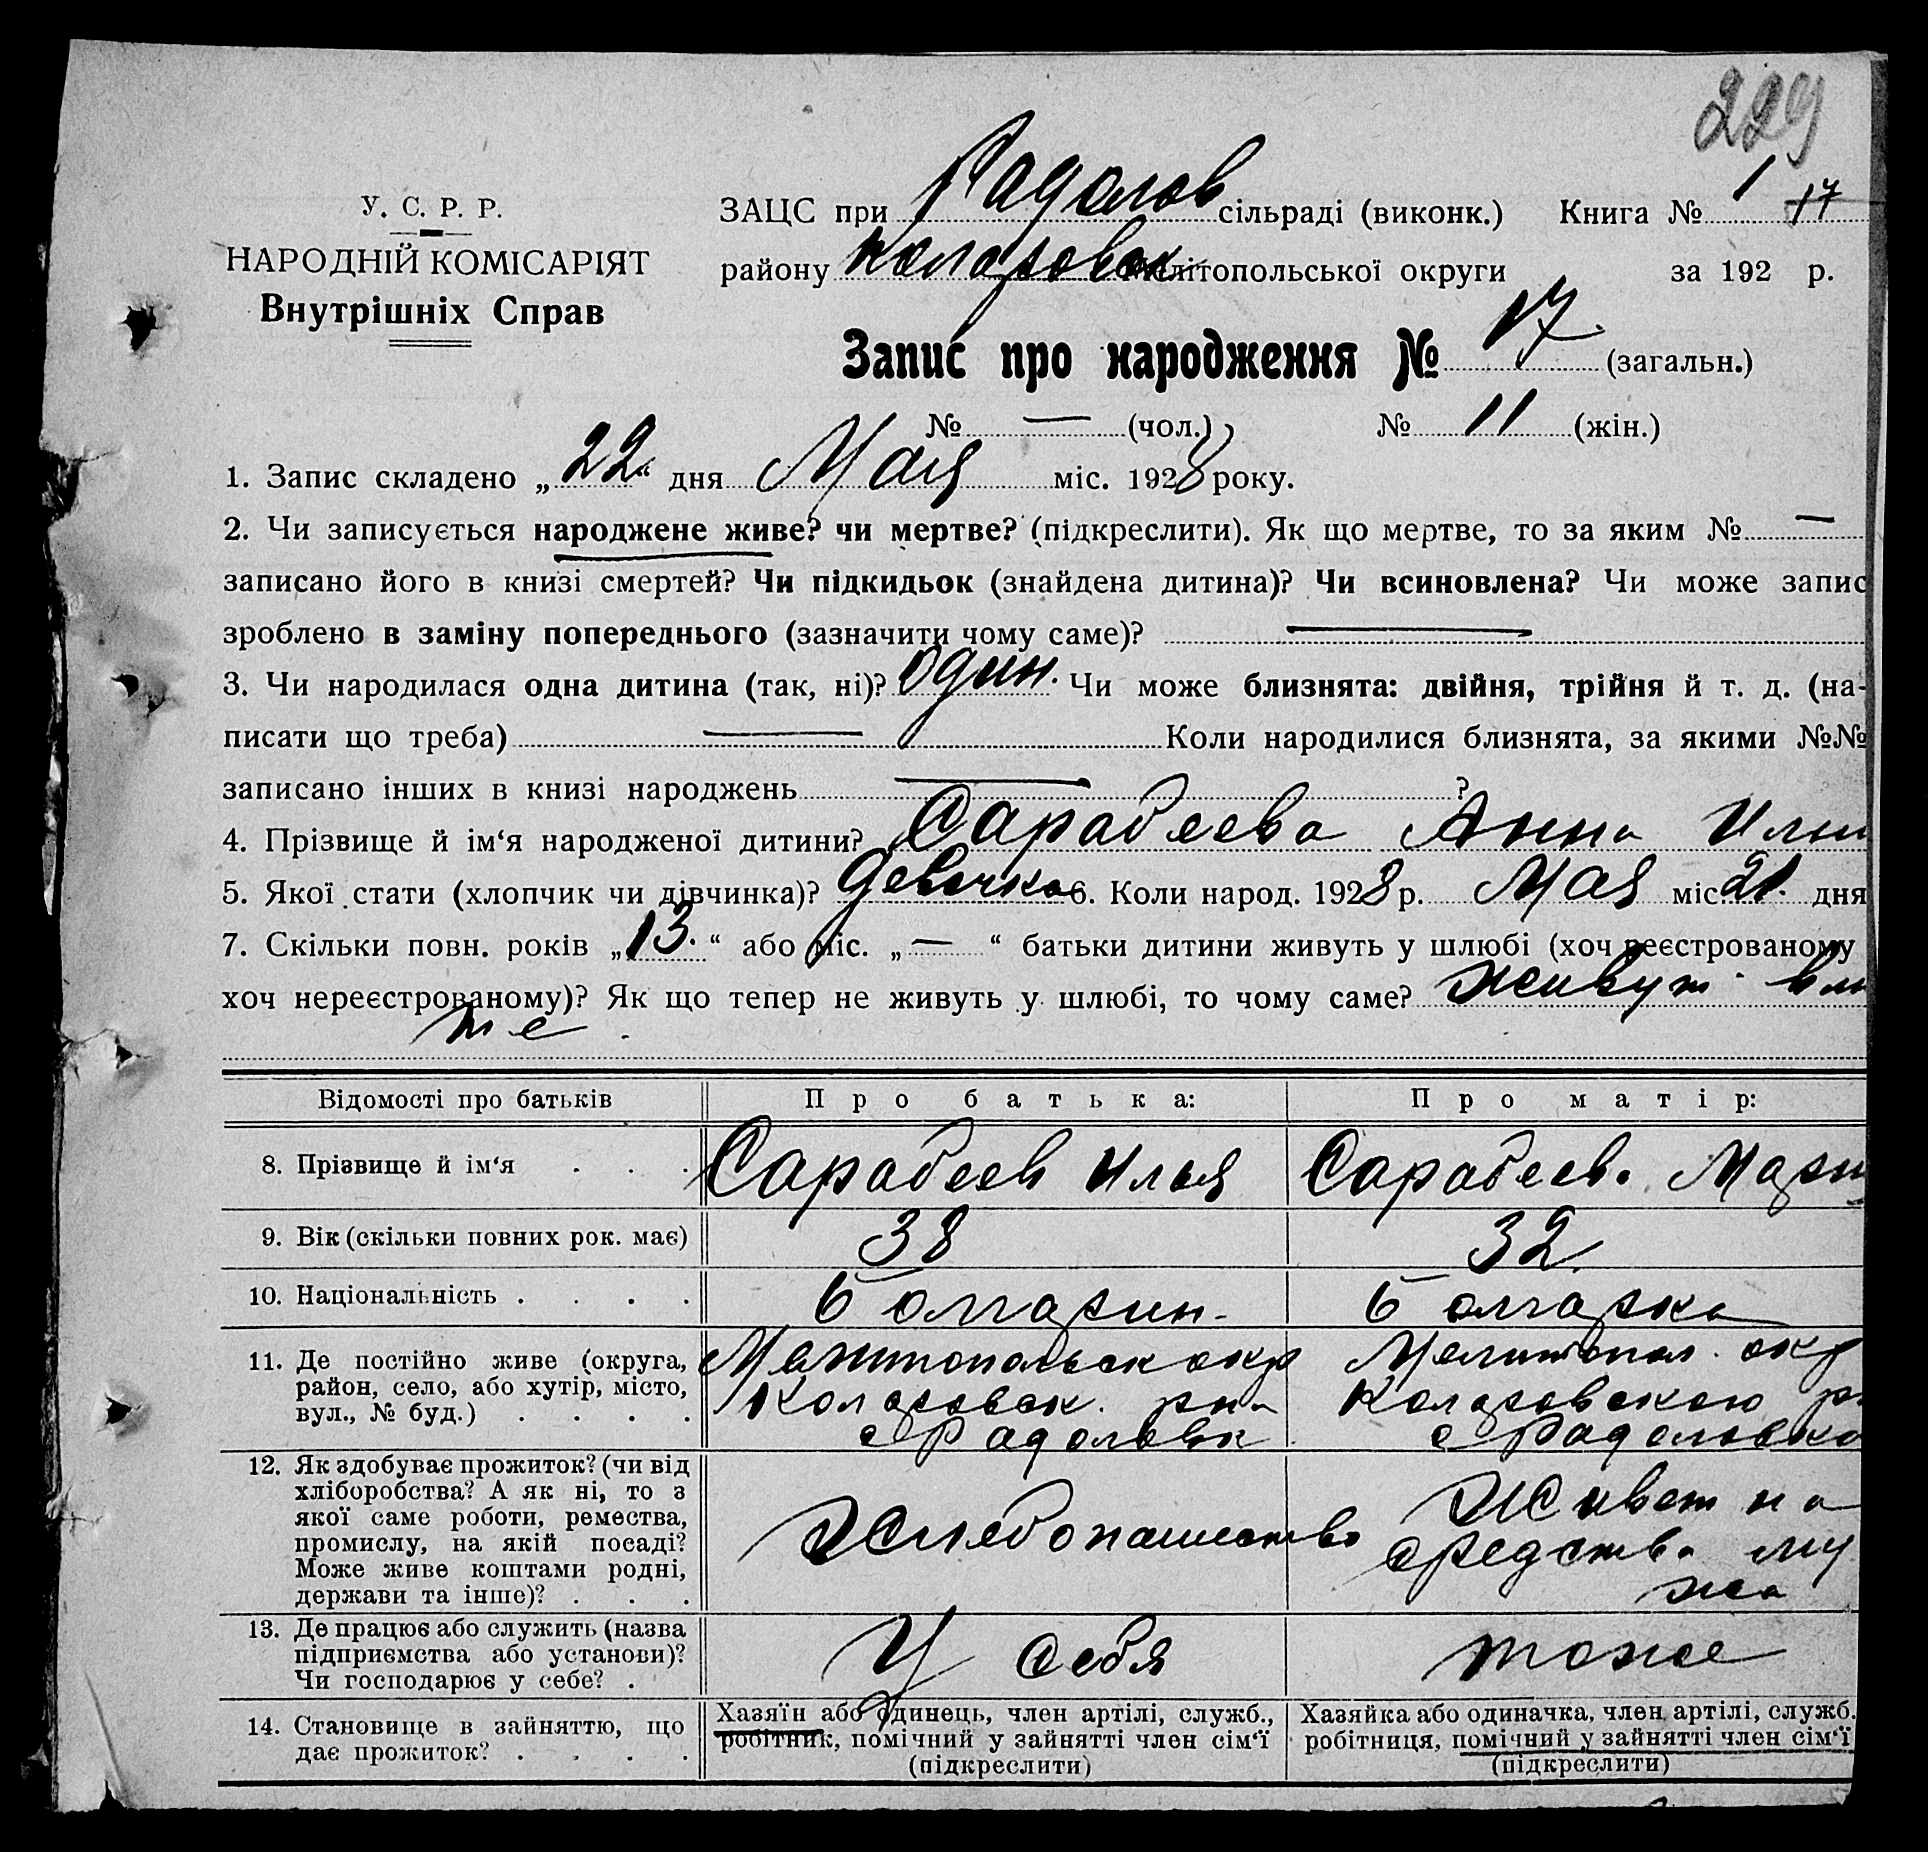 229
У. С. Р. Р.
НАРОДНІЙ КОМІСАРІЯТ
Внутрішніх Справ
ЗАЦС при Радолов сільраді (виконк.) Книга № 1 17
району Коларовск Мелітопольської округи за 192 р.
Запис про народження № 17 (загальн.)
№ — (чол.) № 11 (жін.)
1. Запис складено „22“ дня Мая міс. 1928 року.
2. Чи записується народжене живе? чи мертве? (підкреслити). Як що мертве, то за яким № —
записано його в книзі смертей? Чи підкидьок (знайдена дитина)? Чи всиновлена? Чи може запис
зроблено в заміну попереднього (зазначити чому саме)? —
3. Чи народилася одна дитина (так, ні)? один. Чи може близнята: двійня, трійня й т. д. (на-
писати що треба) — Коли народилися близнята, за якими №№
записано інших в книзі народжень — ?
4. Прізвище й ім‘я народженої дитини? Сарабеева Анна Ильи
5. Якої стати (хлопчик чи дівчинка)? девочка 6. Коли народ. 1928 р. Мая міс. 21. дня
7. Скільки повн. років „13.“ або міс. „—“ батьки дитини живуть у шлюбі (хоч реєстрованому
хоч нереєстрованому)? Як що тепер не живуть у шлюбі, то чому саме? живут вмс
те
Відомості про батьків Про батька: Про матір:
8. Прізвище й ім‘я . . . Сарабеев Илья Сарабеев. Мари
9. Вік (скільки повних рок. має) 38 32
10. Національність . . . . болгарин. болгарка
11. Де постійно живе (округа, Мелитопольск окр Мелитопол. окр
район, село, або хутір, місто, Коларовск. рна Коларовского р.
вул., № буд.) . . . . с Радоловк с Радоловка
12. Як здобуває прожиток? (чи від
хліборобства? А як ні, то з
якої саме роботи, ремества, Живет на
промислу, на якій посаді? Хлебопашество средства му
Може живе коштами родні,
держави та інше)? . . . жа
13. Де працює або служить (назва
підприємства або установи)? У себя тоже
Чи господарює у себе? .
14. Становище в зайняттю, що Хазяїн або одинець, член артілі, служб., Хазяйка або одиначка, член артілі, служб.
дає прожиток? . . . . робітник, помічний у зайнятті член сім‘ї робітниця, помічний у зайнятті член сім‘ї
(підкреслити) (підкреслити)